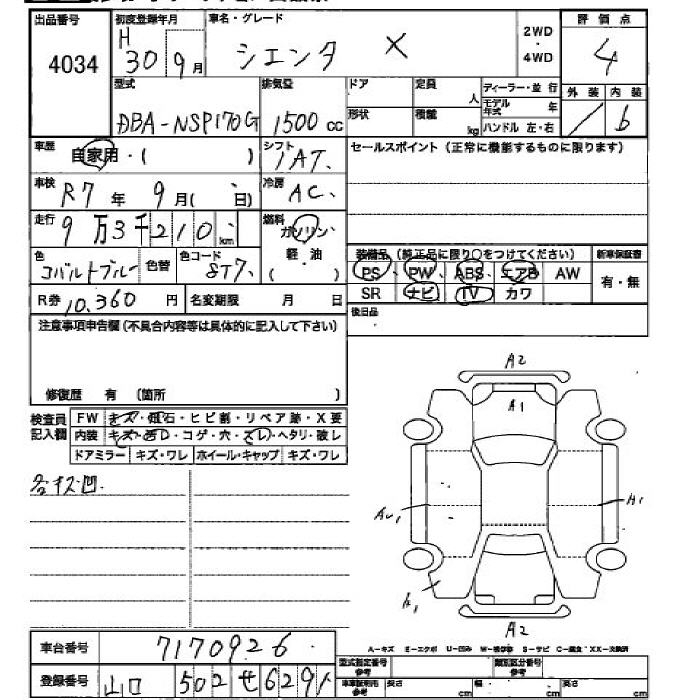 出品番号 初度登録年月 車名・グレード 2WD・4WD 評価点
4034 H 30 9月 シエンタ X 4
型式 排気量 ドア 定員 人 ディーラー・並行 外装 内装
DBA-NSP170G 1500cc 形状 積載 kg モデル年式 年 ハンドル 左・右 b
車歴 自家用・( ) シフト IAT セールスポイント(正常に機能するものに限ります)
車検 R7年 9月( 日) 冷房 AC
走行 9万3千210km 燃料 ガソリン、軽・油 ( )
色 コバルトブルー 色替 色コード 8T7 装備品(純正品に限り○をつけてください) 新車保証書
PS PW ABS エアB AW 有・無
SR ナビ TV カワ
R券 10,360円 名変期限 月 日 後日品
注意事項申告欄(不具合内容等は具体的に記入して下さい)
修復歴 有 (箇所 )
検査員記入欄 FW キズ・飛石・ヒビ割・リペア跡・X要
内装 キズ・汚レ・コゲ・穴・スレ・ヘタリ・破レ
ドアミラー キズ・ワレ ホイール・キャップ キズ・ワレ
各キズ凹
A2
A1
A1
A2
車台番号 7170926
登録番号 山口 502 せ 6291
A-キズ E-エクボ U-凹み S-サビ
型式指定番号 参考 類別区分番号 参考
長さ cm 幅 cm 高さ cm